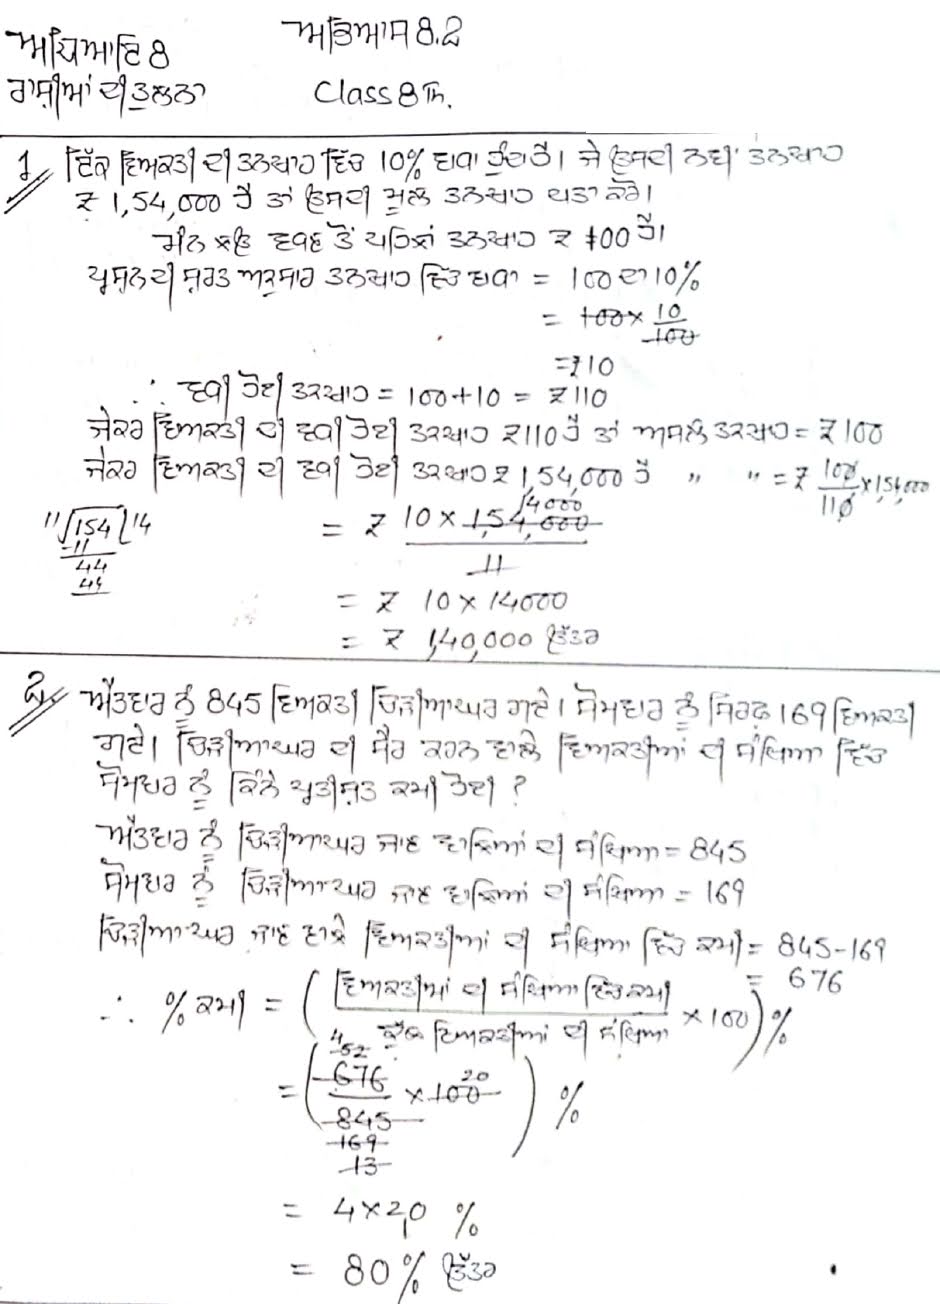 ਅਧਿਆਇ 8
ਅਭਿਆਸ 8.2
ਰਾਸ਼ੀਆਂ ਦੀ ਤੁਲਨਾ
Class 8th.
1. ਇੱਕ ਵਿਅਕਤੀ ਦੀ ਤਨਖਾਹ ਵਿੱਚ 10% ਵਾਧਾ ਹੁੰਦਾ ਹੈ। ਜੇ ਉਸਦੀ ਨਵੀਂ ਤਨਖਾਹ
₹ 1,54,000 ਹੈ ਤਾਂ ਉਸਦੀ ਮੂਲ ਤਨਖਾਹ ਪਤਾ ਕਰੋ।
ਮੰਨ ਲਓ ਵਧਣ ਤੋਂ ਪਹਿਲਾਂ ਤਨਖਾਹ ₹ 100 ਹੈ।
ਪ੍ਰਸ਼ਨ ਦੀ ਸ਼ਰਤ ਅਨੁਸਾਰ ਤਨਖਾਹ ਵਿੱਚ ਵਾਧਾ = 100 ਦਾ 10%
= 100 × 10/100
= ₹10
∴ ਵਧੀ ਹੋਈ ਤਨਖਾਹ = 100+10 = ₹110
ਜੇਕਰ ਵਿਅਕਤੀ ਦੀ ਵਧੀ ਹੋਈ ਤਨਖਾਹ ₹110 ਹੈ ਤਾਂ ਅਸਲ ਤਨਖਾਹ = ₹100
ਜੇਕਰ ਵਿਅਕਤੀ ਦੀ ਵਧੀ ਹੋਈ ਤਨਖਾਹ ₹ 1,54,000 ਹੈ " " = ₹ 100/110 × 1,54,000
11√154 14
-11
44
44
14000
= ₹ 10 × 1,54,000 / 11
= ₹ 10 × 14000
= ₹ 1,40,000 ਉੱਤਰ
2. ਐਤਵਾਰ ਨੂੰ 845 ਵਿਅਕਤੀ ਚਿੜੀਆਘਰ ਗਏ। ਸੋਮਵਾਰ ਨੂੰ ਸਿਰਫ਼ 169 ਵਿਅਕਤੀ
ਗਏ। ਚਿੜੀਆਘਰ ਦੀ ਸੈਰ ਕਰਨ ਵਾਲੇ ਵਿਅਕਤੀਆਂ ਦੀ ਸੰਖਿਆ ਵਿੱਚ
ਸੋਮਵਾਰ ਨੂੰ ਕਿੰਨੇ ਪ੍ਰਤੀਸ਼ਤ ਕਮੀ ਹੋਈ ?
ਐਤਵਾਰ ਨੂੰ ਚਿੜੀਆਘਰ ਜਾਣ ਵਾਲਿਆਂ ਦੀ ਸੰਖਿਆ = 845
ਸੋਮਵਾਰ ਨੂੰ ਚਿੜੀਆਘਰ ਜਾਣ ਵਾਲਿਆਂ ਦੀ ਸੰਖਿਆ = 169
ਚਿੜੀਆਘਰ ਜਾਣ ਵਾਲੇ ਵਿਅਕਤੀਆਂ ਦੀ ਸੰਖਿਆ ਵਿੱਚ ਕਮੀ = 845-169
= 676
∴ % ਕਮੀ = ( ਵਿਅਕਤੀਆਂ ਦੀ ਸੰਖਿਆ ਵਿੱਚ ਕਮੀ / ਕੁੱਲ ਵਿਅਕਤੀਆਂ ਦੀ ਸੰਖਿਆ × 100 ) %
4
52 20
= ( 676 / 845 × 100 ) %
169
13
= 4×20 %
= 80% ਉੱਤਰ